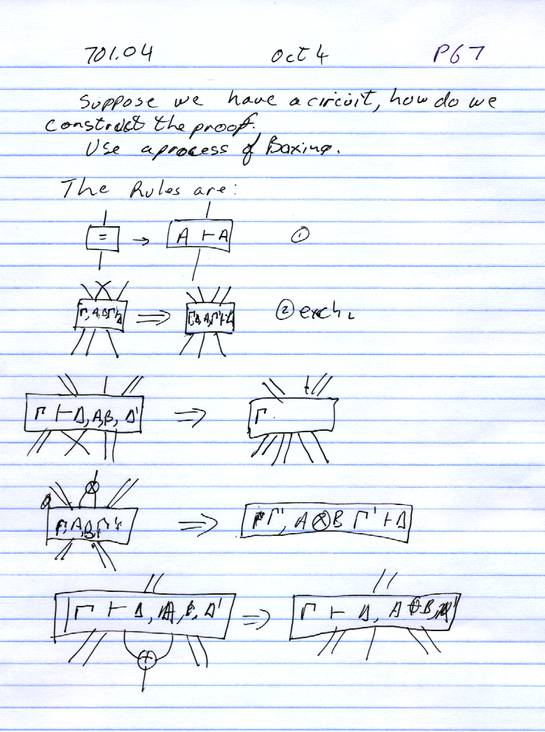 701.04 Oct 4 P67
Suppose we have a circuit, how do we
construct the proof.
Use a process of Boxing.
The Rules are:
= → A ⊢ A ①
⇒ ② exch
Γ ⊢ Δ, A, B, Δ' ⇒ Γ
Γ, A, B, Γ' ⇒ Γ, A ⊗ B Γ' ⊢ Δ
Γ ⊢ Δ, A, B, Δ' ⇒ Γ ⊢ Δ, A ⊕ B,